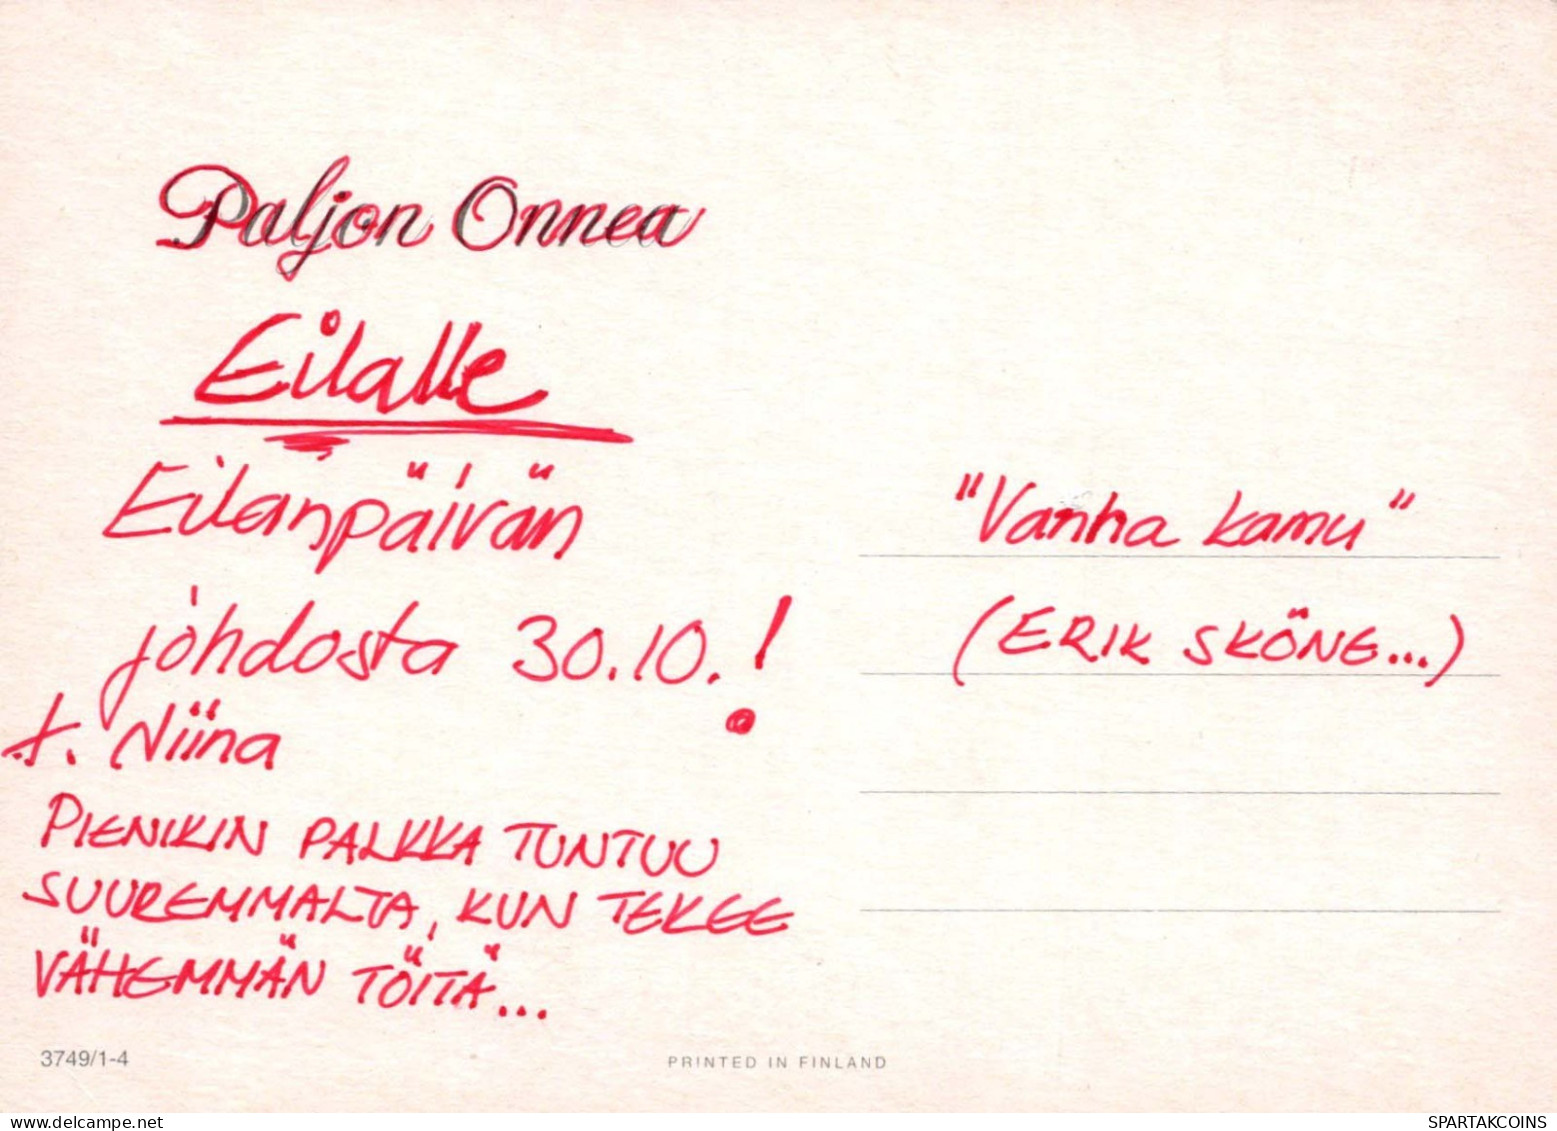 Paljon Onnea
Eilalle
Eilanpäivän
johdosta 30.10.!
t. Niina
PIENIKIN PALKKA TUNTUU
SUUREMMALTA, KUN TEKEE
VÄHEMMÄN TÖITÄ...
"Vanha kamu"
(ERIK SKÖNE...)
3749/1-4
PRINTED IN FINLAND
delcampe.net
SPARTAKCOINS